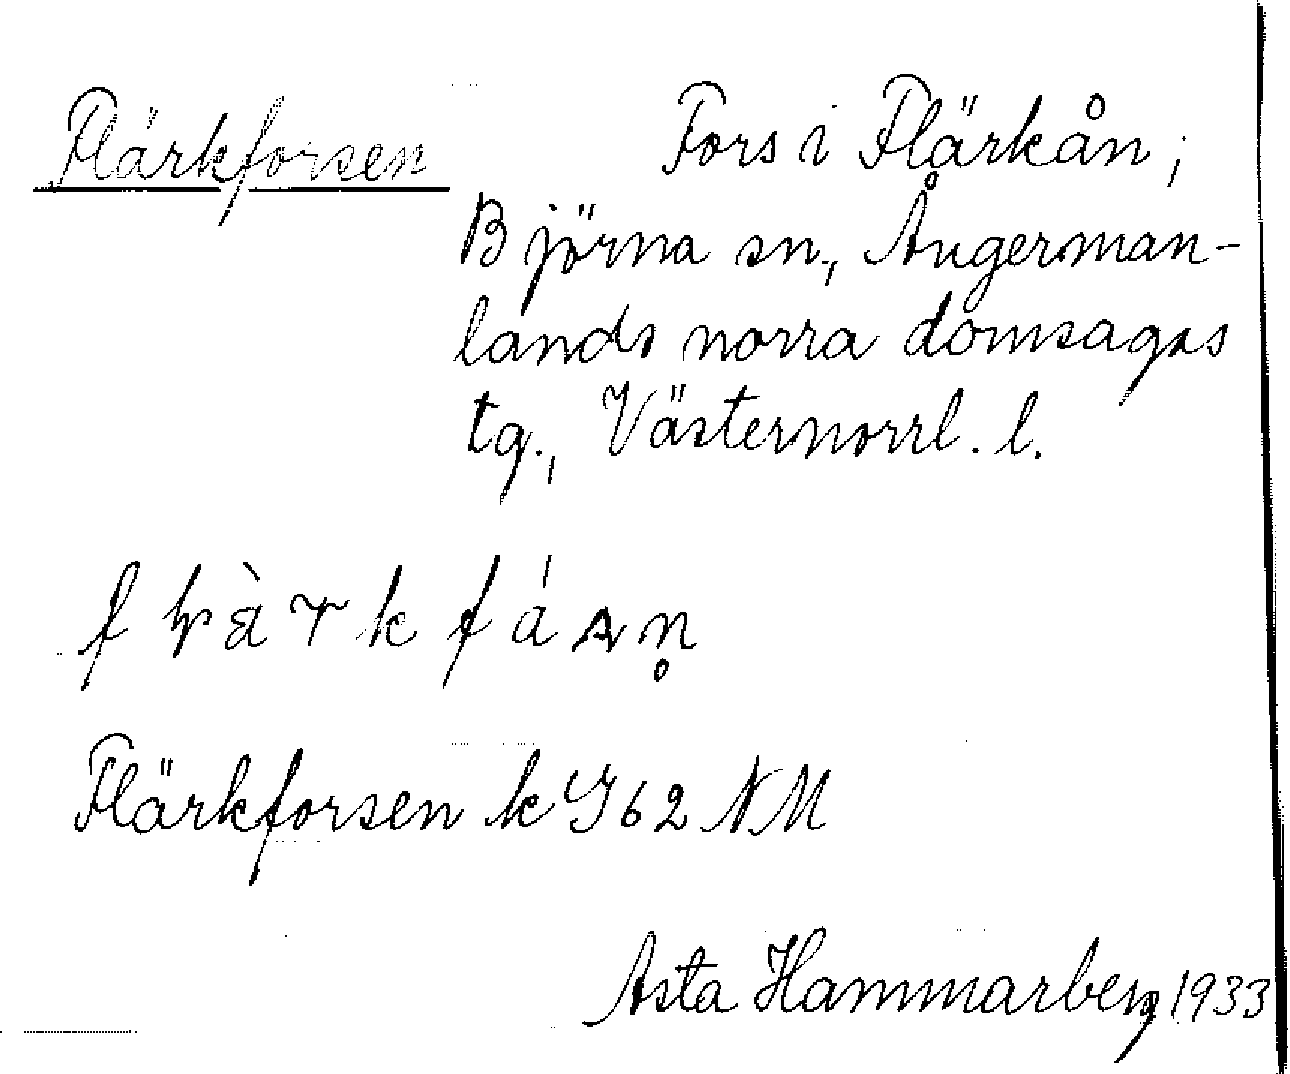 Flärkforsen
Fors i Flärkån,
Björna sn., Ångerman-
lands norra domsagas
tg., Västernorrl. l.
Flärkforsen k Y62 NM
Asta Hammarberg 1933